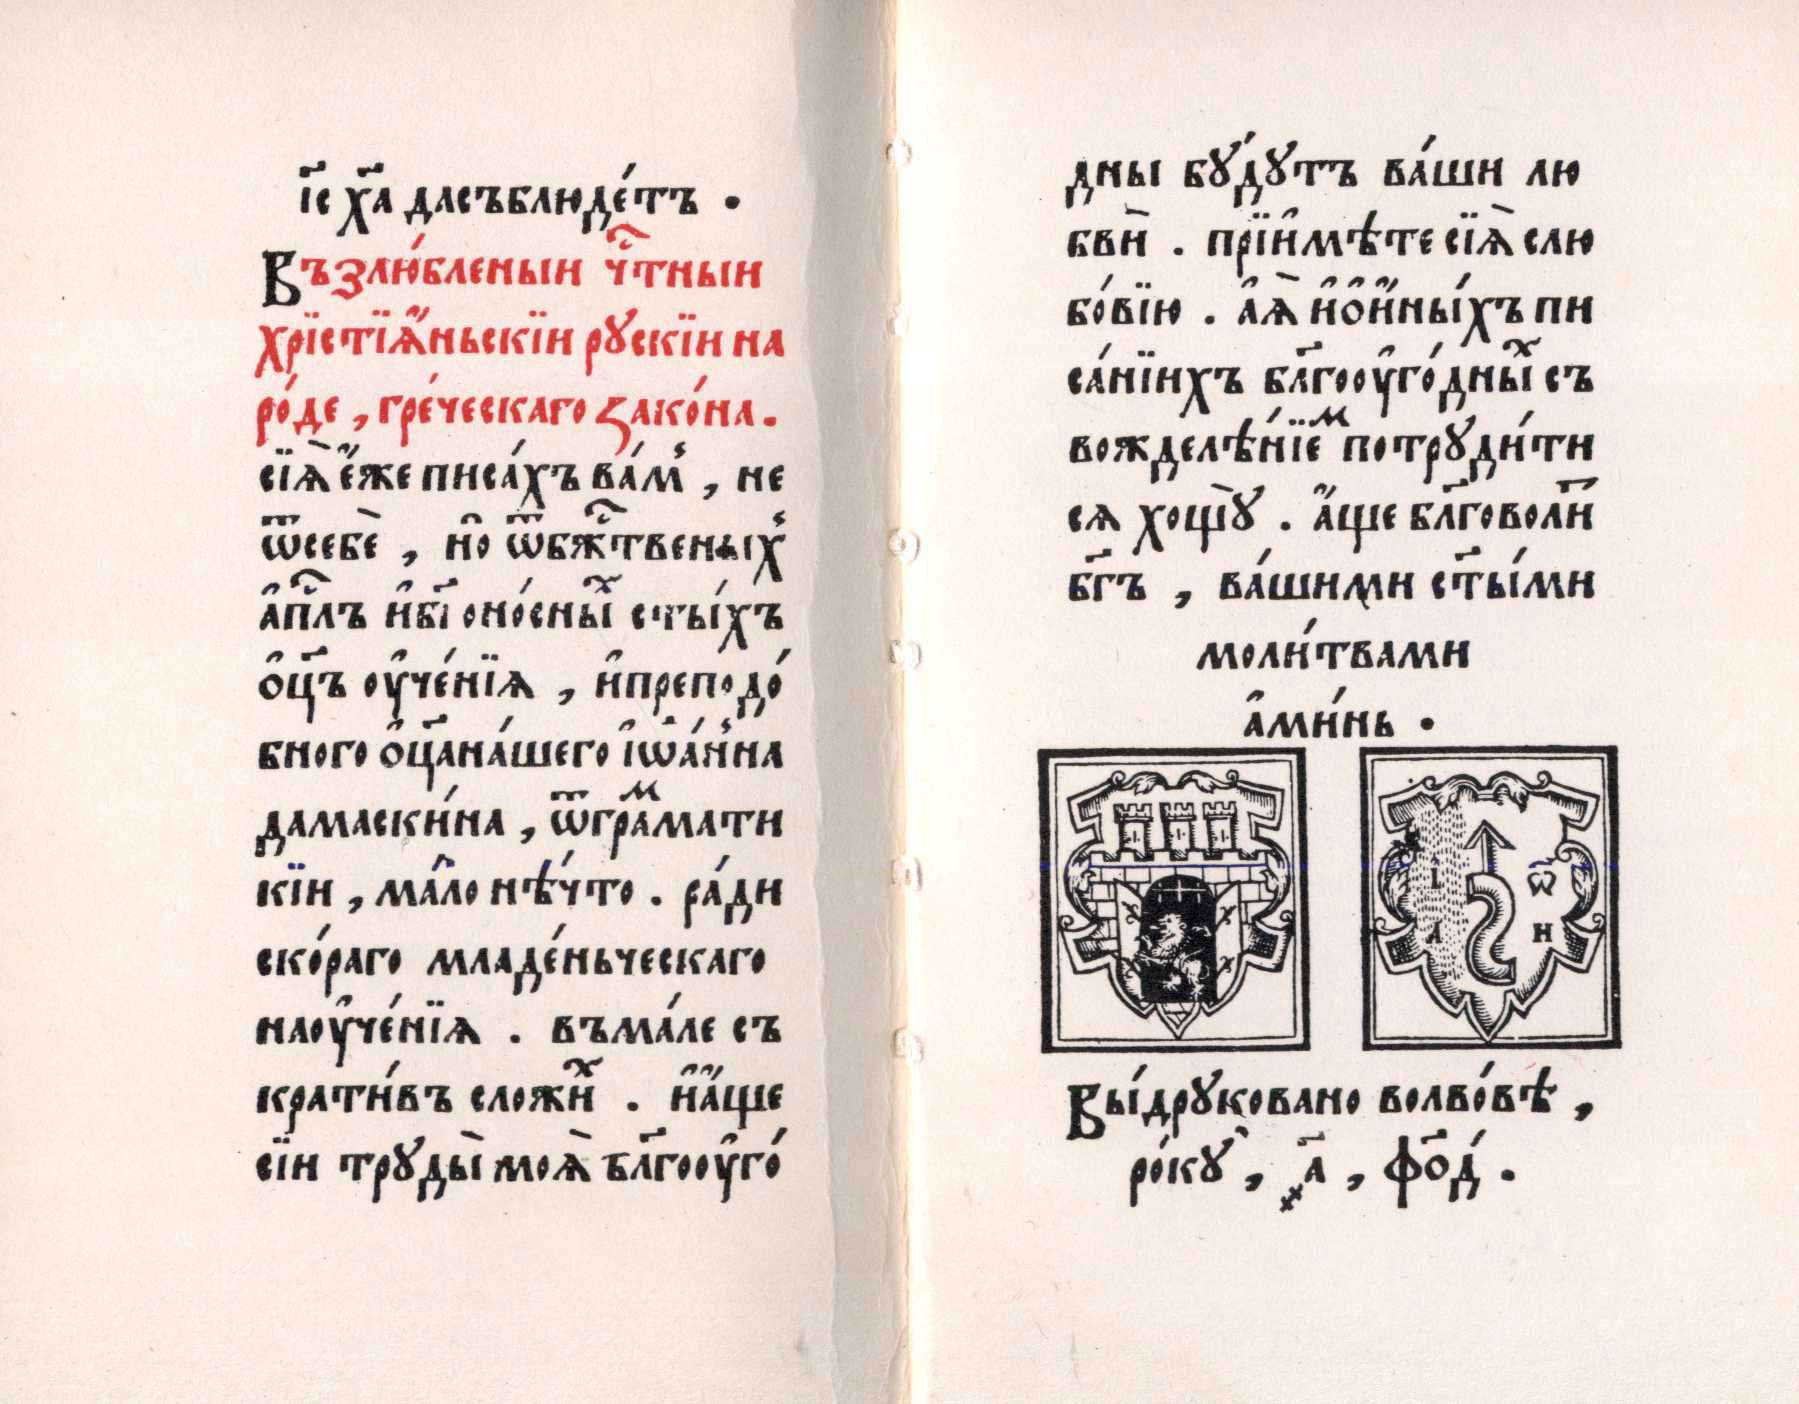 і҃с х҃а дасъблюде́тъ .
Възлю́бленыи чⷭ҇тныи
хрїстїѧ́ньскїи рꙋскїи на
ро́де , гре́ческаго зако́на .
сїѧ̀ е҆́же писа́хъ ва́мъ , не
ѿсебѐ , но̑ ѿбжⷭ҇твеныхъ
а҆пⷭ҇лъ и҆бг҃оно́сныⷯ ст҃ы́хъ
ѻ҆ц҃ъ оу҆че́нїѧ , и҆преподо́
бного ѻ҆ц҃ана́шего і҆ѡа́нна
дамаски́на , ѿграⷨматі
кїи , ма́ло нѣ́что . ра́ди
ско́раго младе́ньческаго
наоу҆че́нїѧ . въма́ле съ
крати́въ сложиⷯ . и҆а҆́ще
сїи трꙋды̀ моѧ̀ бл҃гооу҆го́
дны бꙋ́дꙋтъ ва́ши лю
бвѝ . прїи҆мѣ́те сїѧ̀ слю
бо́вїю . а҆ѧ̀ и҆ѻ҆и҆́ны́хъ пи
са́нїихъ бл҃гооу҆го́дныⷯ съ
вожделѣ́нїеⷨ потрꙋди́ти
сѧ хощꙋ̀ . а҆́ще бл҃говоли́т
бг҃ъ , ва́шими ст҃ы́ми
моли́твами
а҆ми́нь .
І Ѿ
А Н
Вы́дрꙋковано волво́вѣ ,
ро́кꙋ̀ , ҂а҃ , фо҃д .